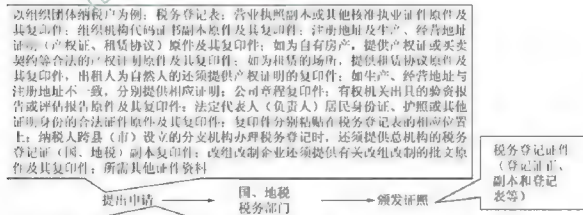 以组织团体纳税户为例：税务登记表；营业执照副本或其他核准执业证件原件及
其复印件；组织机构代码证书副本原件及其复印件；注册地址及生产、经营地址
证明（产权证、租赁协议）原件及其复印件；如为自有房产，提供产权证或买卖
契约等合法的产权证明原件及其复印件；如为租赁的场所，提供租赁协议原件及
其复印件，出租人为自然人的还须提供产权证明的复印件；如生产、经营地址与
注册地址不一致，分别提供相应证明；公司章程复印件；有权机关出具的验资报
告或评估报告原件及其复印件；法定代表人（负责人）居民身份证、护照或其他
证明身份的合法证件原件及其复印件；复印件分别粘贴在税务登记表的相应位置
上；纳税人跨县（市）设立的分支机构办理税务登记时，还须提供总机构的税务
登记证（国、地税）副本复印件；改组改制企业还须提供有关改组改制的批文原
件及其复印件；所需其他证件资料
税务登记证件
（登记证正、
副本和登记
表等）
提出申请
国、地税
税务部门
颁发证照